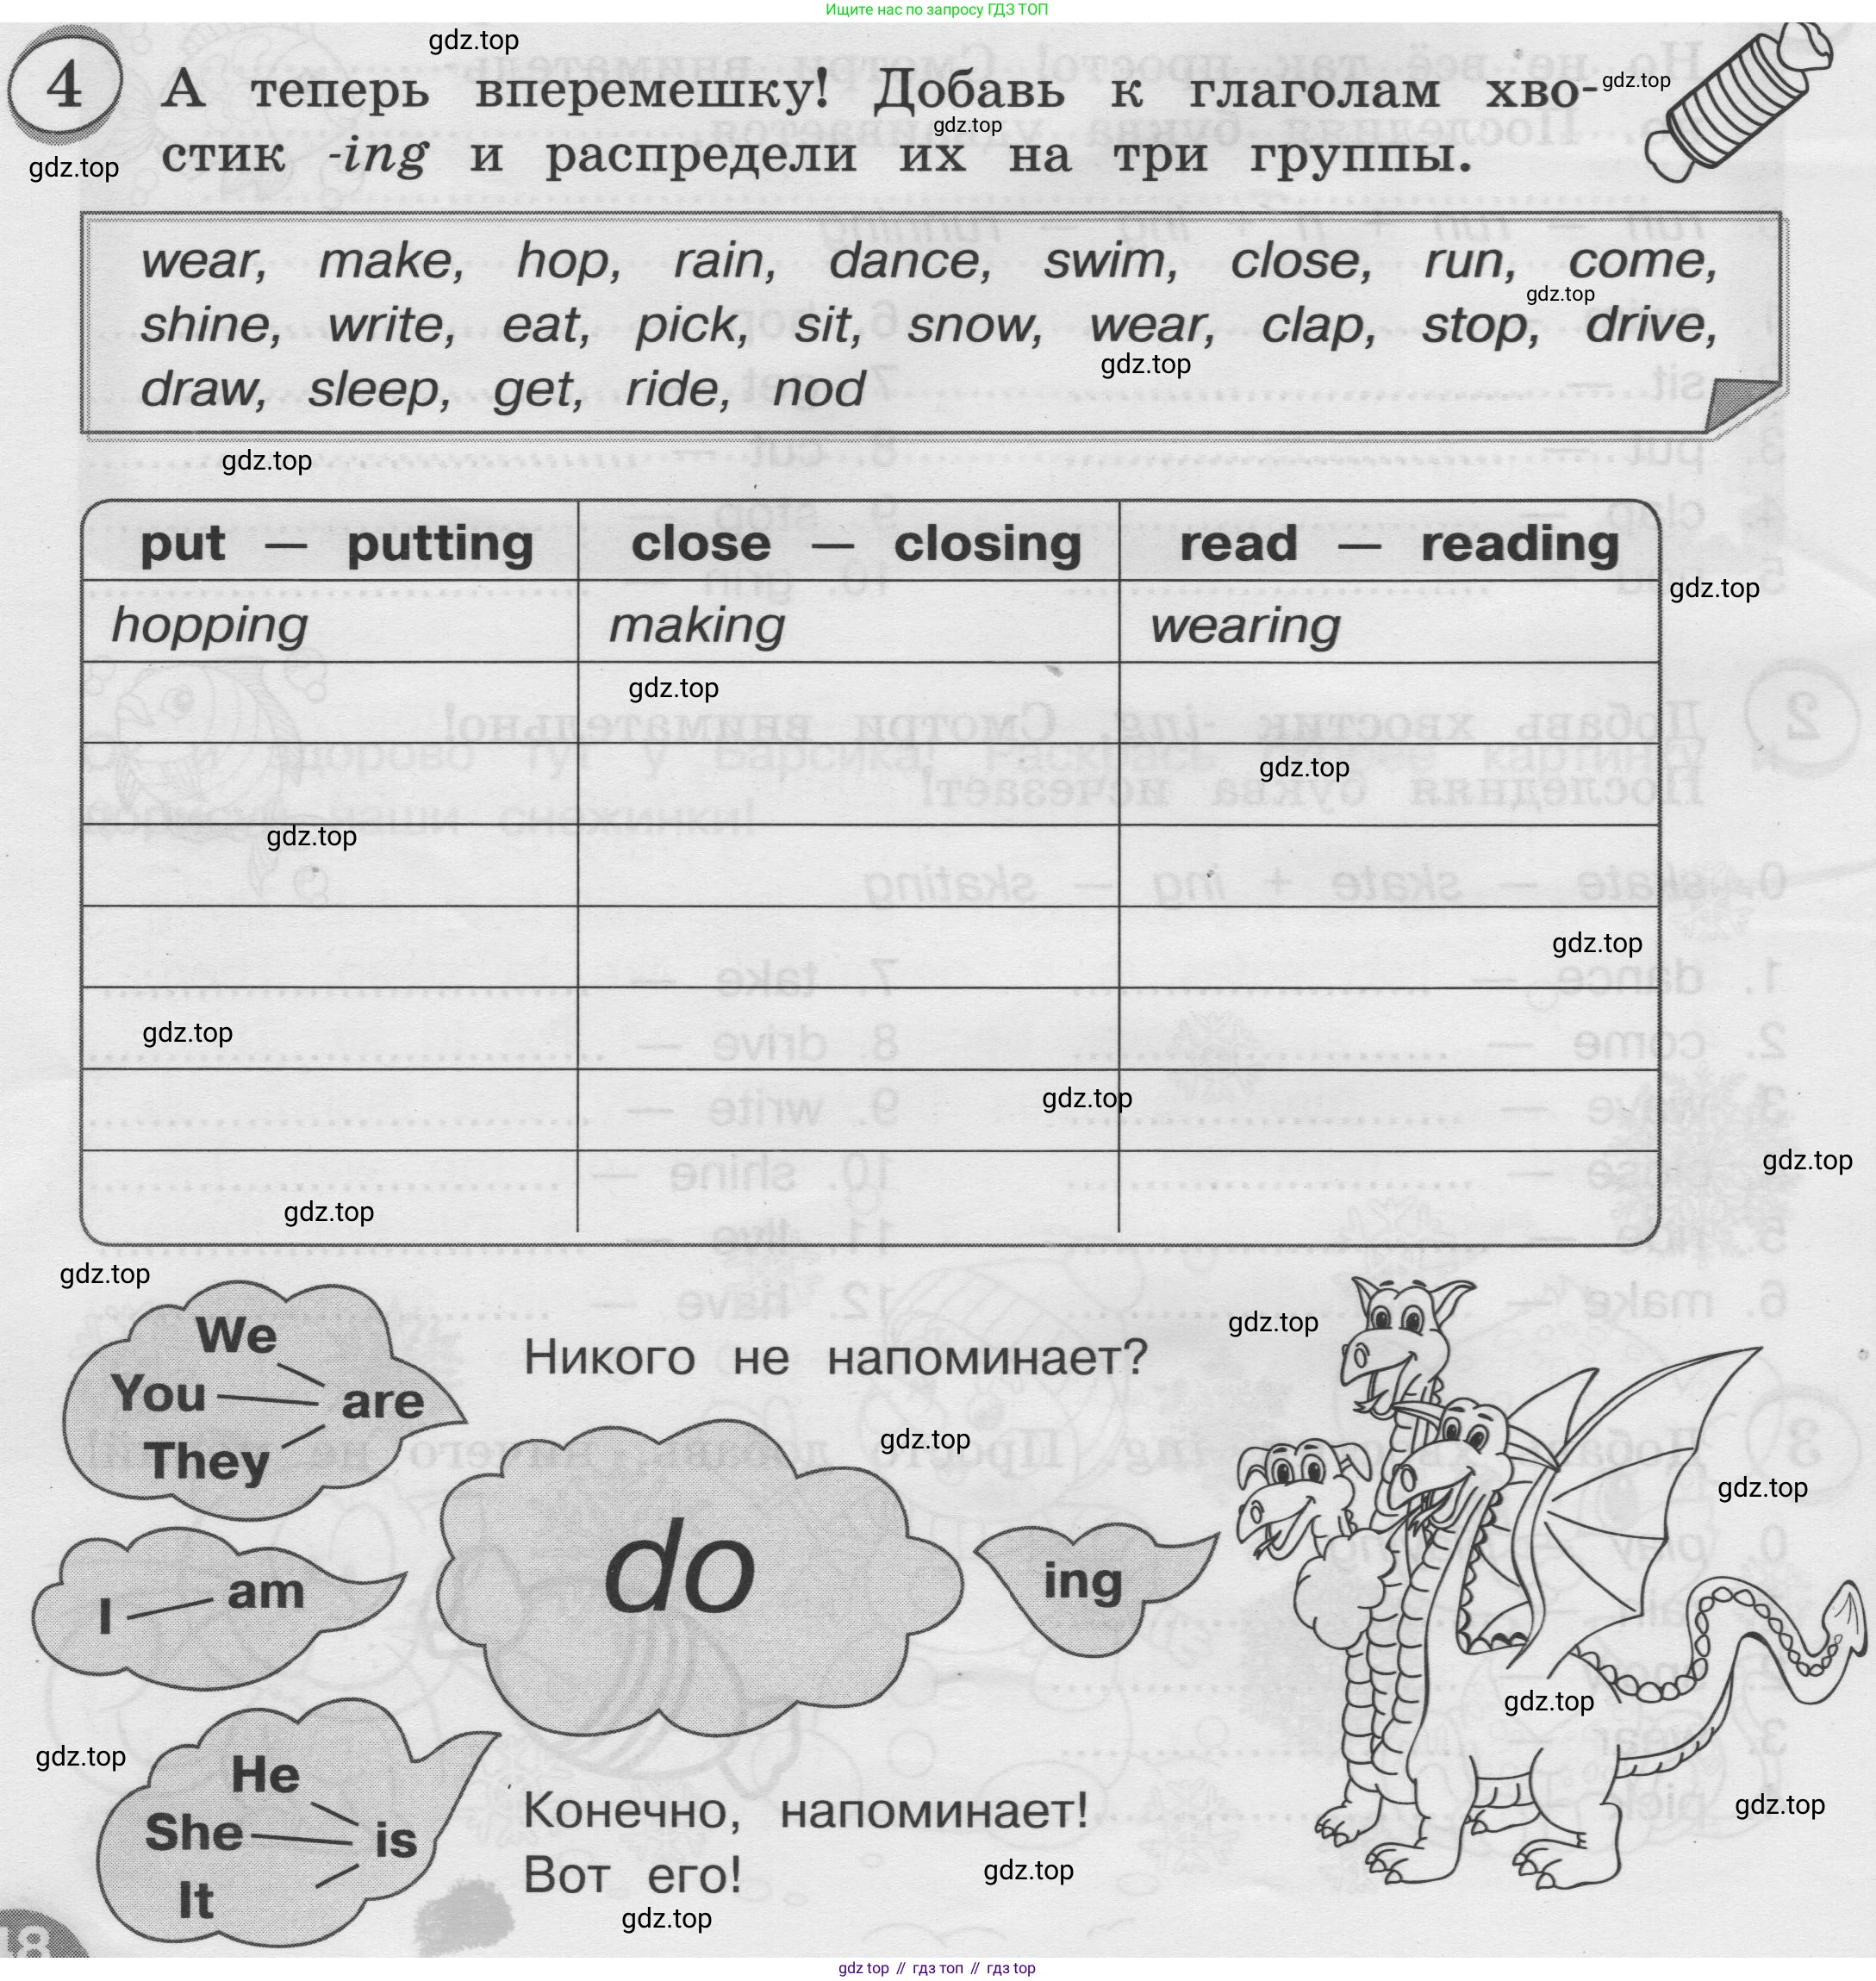 Ищите нас по запросу ГДЗ ТОП
gdz.top
4 А теперь вперемешку! Добавь к глаголам хво-
gdz.top
gdz.top
стик -ing и распредели их на три группы.
gdz.top
wear, make, hop, rain, dance, swim, close, run, come,
gdz.top
shine, write, eat, pick, sit, snow, wear, clap, stop, drive,
gdz.top
draw, sleep, get, ride, nod
gdz.top
put — putting close — closing read — reading
gdz.top
hopping making wearing
gdz.top
gdz.top
gdz.top
gdz.top
gdz.top
gdz.top
gdz.top
gdz.top
gdz.top
gdz.top
We
You
They
are
Никого не напоминает?
gdz.top
gdz.top
I am
do
ing
gdz.top
gdz.top
He
She
It
is
Конечно, напоминает!
Вот его!
gdz.top
gdz.top
gdz.top
18
gdz.top // гдз топ // гдз top